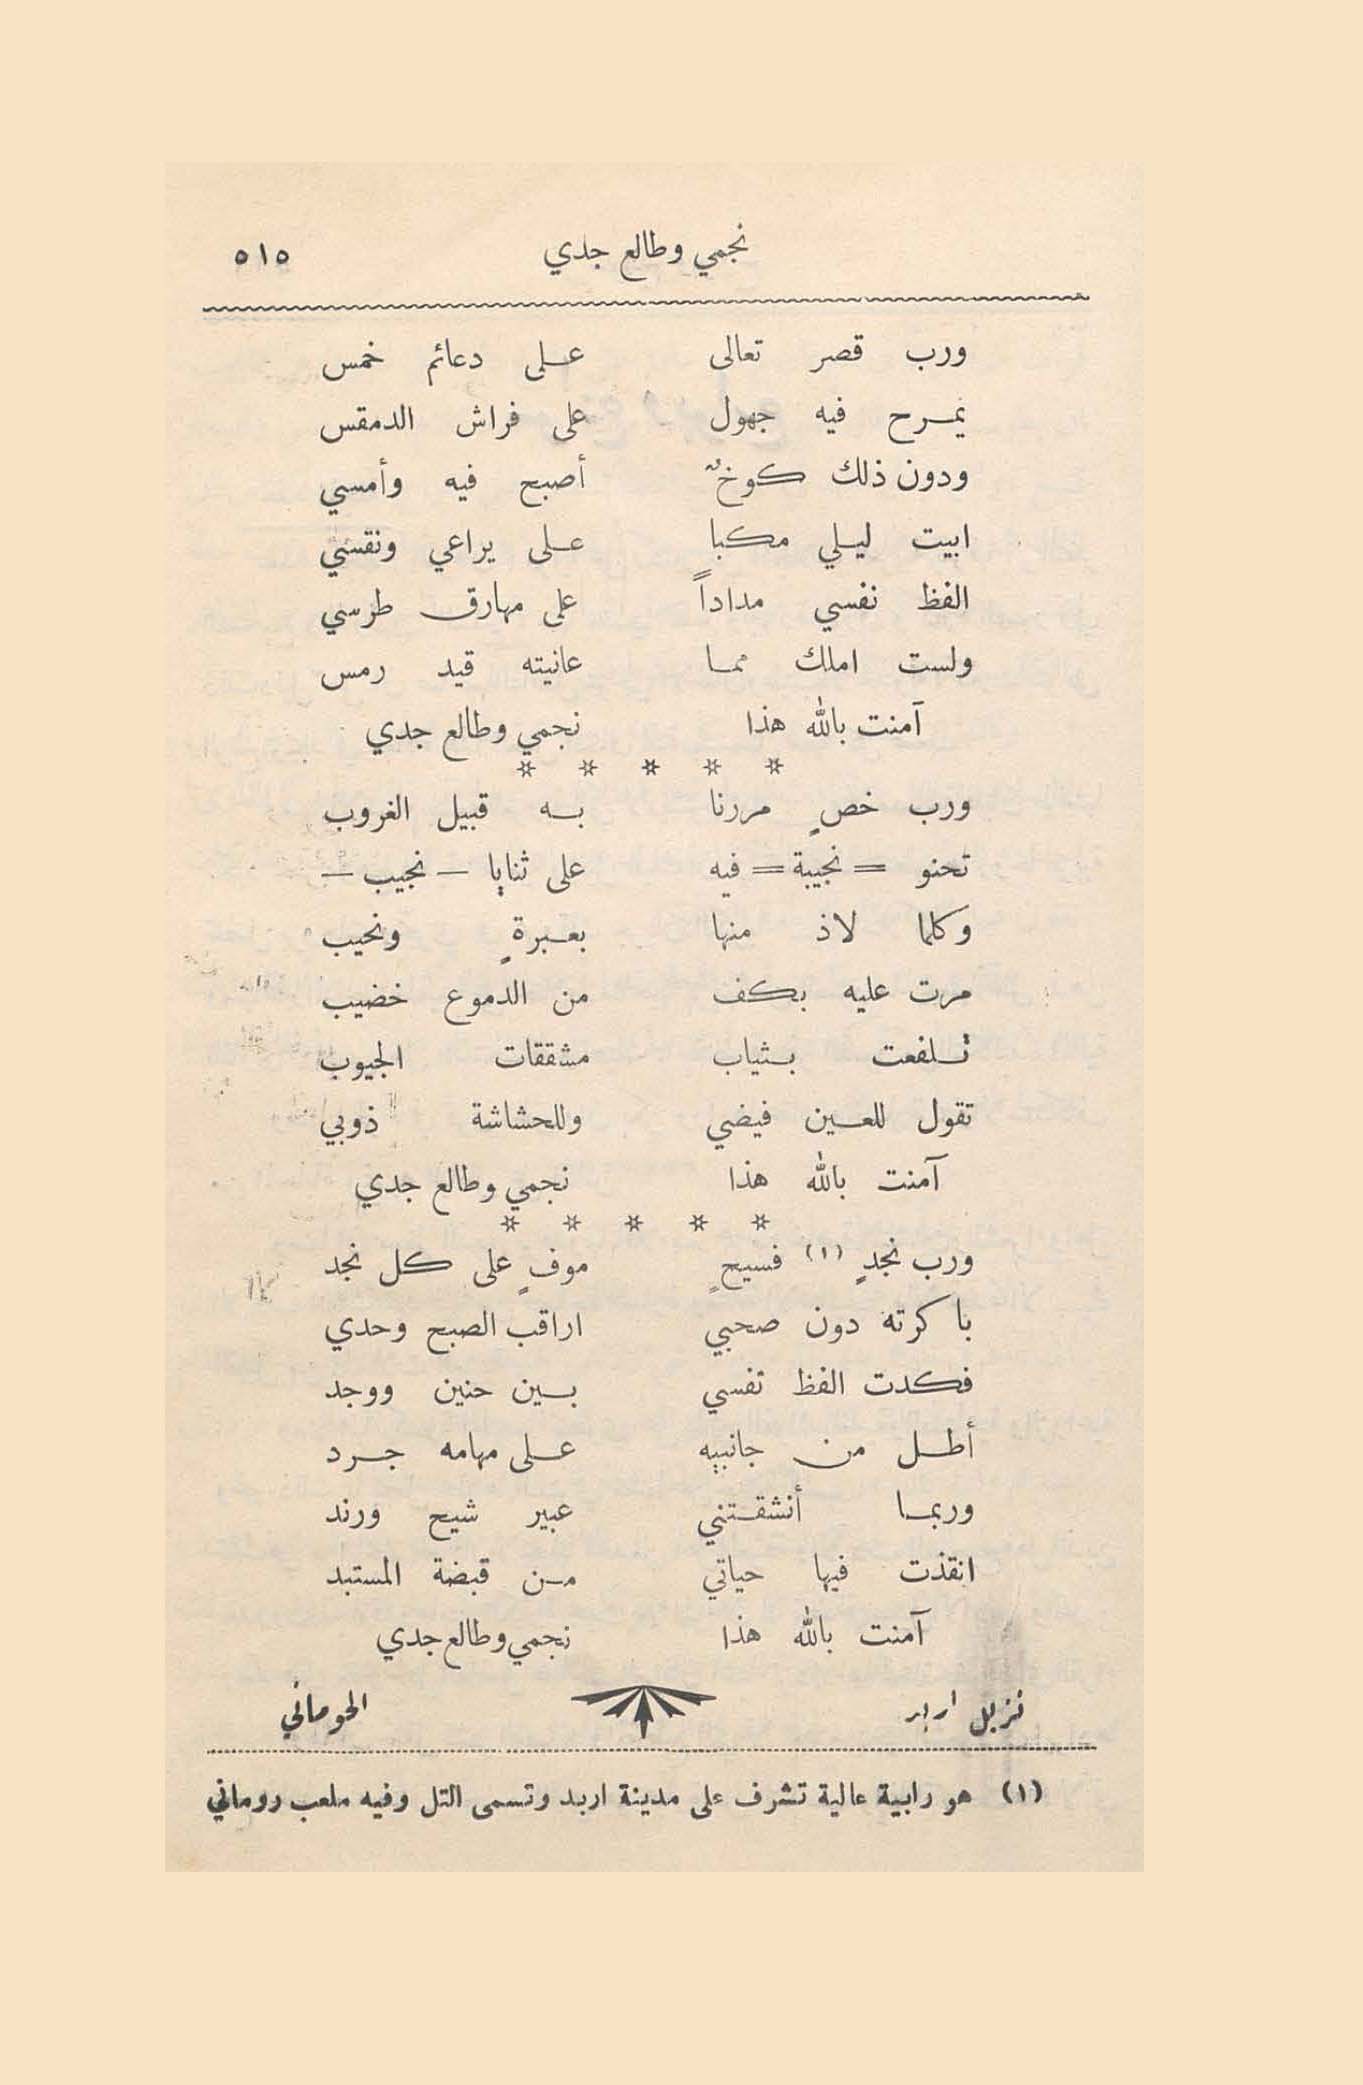 نجمي وطالع جدي ٥١٥
ورب قصر تعالى على دعائم خمس
يمرح فيه جهول على فراش الدمقس
ودون ذلك كوخٌ أصبح فيه وأمسي
ابيت ليلي مكبا على يراعي ونقسي
الفظ نفسي مداداً على مهارق طرسي
ولست املك مما عانيته قيد رمس
آمنت بالله هذا نجمي وطالع جدي
* * * * *
ورب خصٍ مررنا به قبيل الغروب
تحنو = نجيبة = فيه على ثنايا – نجيب –
وكلما لاذ منها بعبرةٍ ونحيب
مرت عليه بكف من الدموع خضيب
تلفعت بثياب مشققات الجيوب
تقول للعين فيضي وللحشاشة ذوبي
آمنت بالله هذا نجمي وطالع جدي
* * * * *
ورب نجدٍ (١) فسيحٍ موفٍ على كل نجد
باكرته دون صحبي اراقب الصبح وحدي
فكدت الفظ نفسي بين حنين ووجد
أطل من جانبيه على مهامه جرد
وربما أنشقتني عبير شيح ورند
انقذت فيها حياتي من قبضة المستبد
آمنت بالله هذا نجمي وطالع جدي
نزيل اربد الحوماني
(١) هو رابية عالية تشرف على مدينة اربد وتسمى التل وفيه ملعب روماني